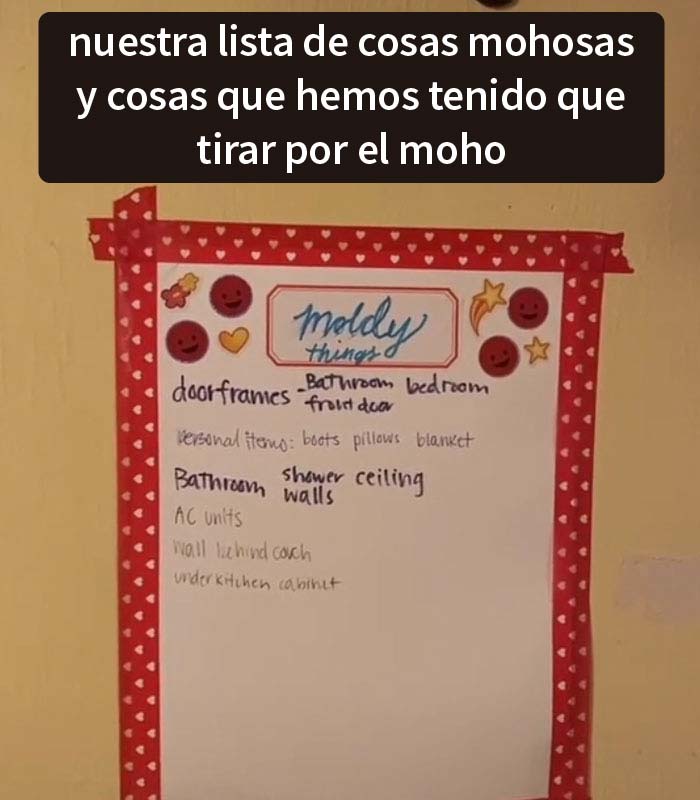 nuestra lista de cosas mohosas
y cosas que hemos tenido que
tirar por el moho
moldy
things
doorframes - Bathroom bedroom
front door
personal items: boots pillows blanket
Bathroom shower ceiling
walls
AC units
wall behind couch
under kitchen cabinet